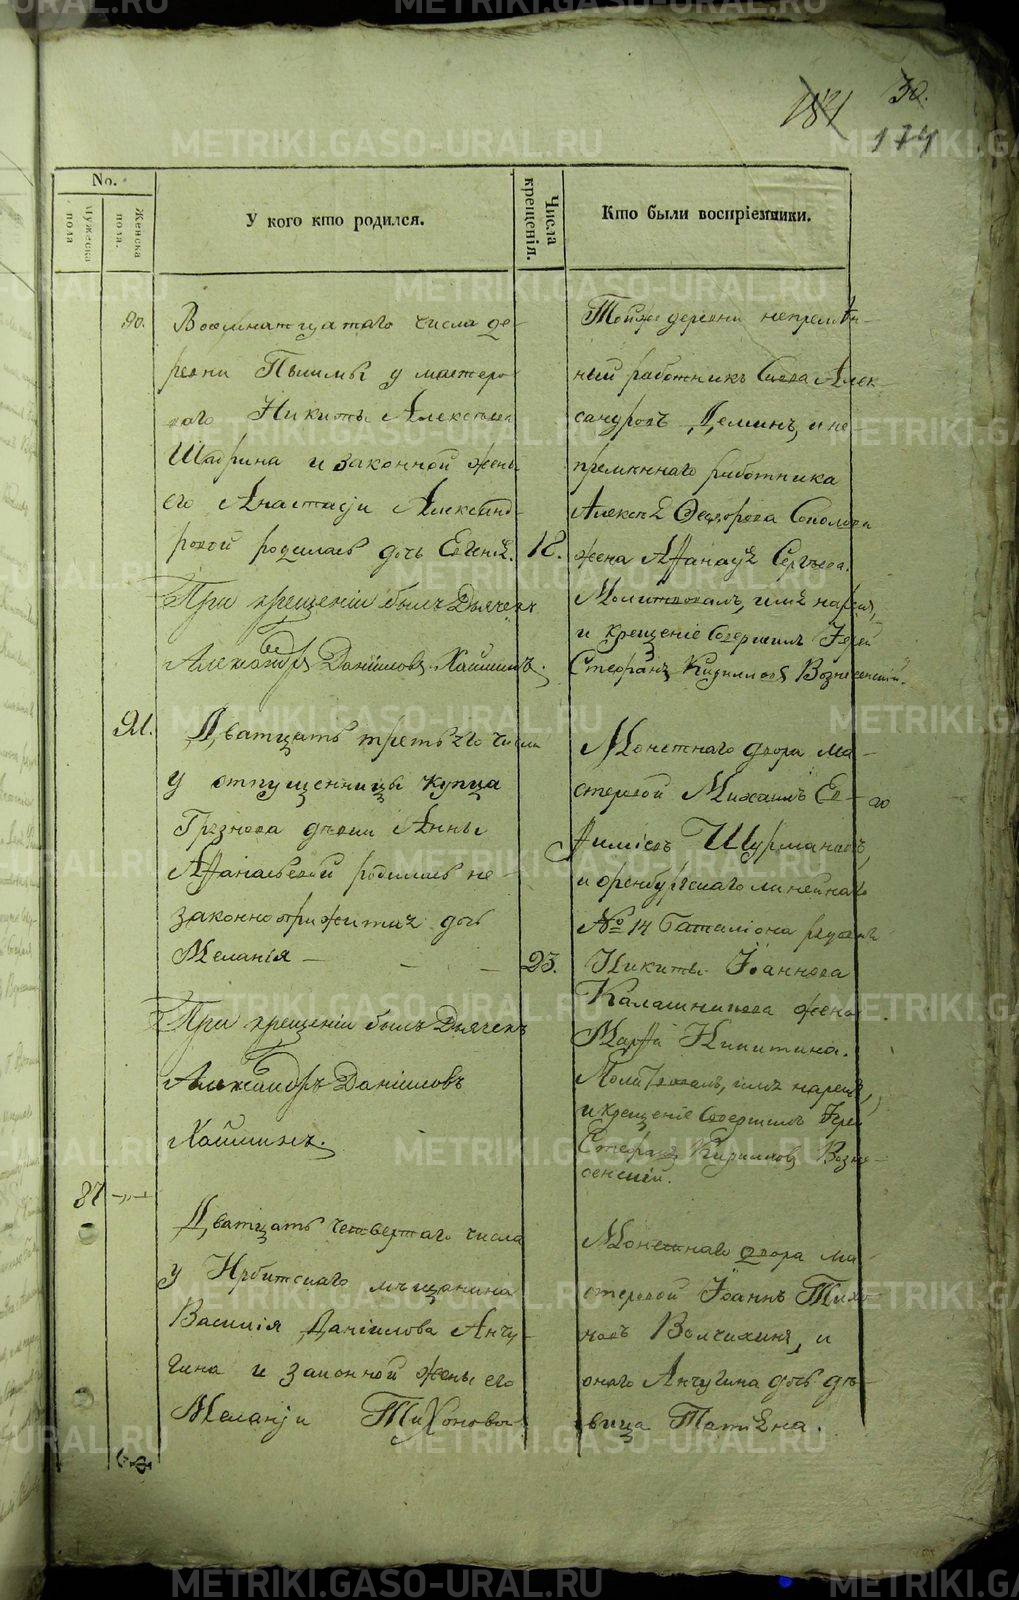 30.
181
174
No.
Мужеска пола
Женска пола.
У кого кто родился.
Числа крещенія.
Кто были воспріемники.
90.
Восемнатцатаго числа де-
ревни Пышмы у мастеро-
ваго Никиты Алексѣева
Шабрина и законной жены
его Анастасіи Александ-
ровой родилась дочь Евгенія.
18.
При крещеніи былъ Дьячекъ
Александръ Даніиловъ Хайминъ.
Тойже деревни непремѣн-
ный работникъ Савва Алек-
сандровъ Деминъ, и не-
премѣннаго работника
Алексѣя Ѳедорова Соколова
жена Афанасія Сергѣева.
Молитвовалъ, имя нарекъ,
и крещеніе совершилъ Іерей
Стефанъ Кирилловъ Вознесенскій.
91.
Дватцать третьяго числа
у отпущенницы купца
Грязнова дѣвки Анны
Афанасьевой родилась не-
законноприжитая дочь
Меланія
23.
При крещеніи былъ Дьячекъ
Александръ Даніиловъ
Хайминъ.
Монетнаго двора ма-
стеровой Михаилъ Ев-
фиміевъ Шурмановъ,
и оренбургскаго линейнаго
№ 14 Баталіона рядоваго
Никиты Іоаннова
Калашникова жена
Марфа Никитина.
Молитвовалъ, имя нарекъ,
и крещеніе совершилъ Іерей
Стефанъ Кирилловъ Возне-
сенскій.
87
Дватцать четвертаго числа
у Ирбитскаго мѣщанина
Василія Даніилова Анчу-
гина и законной жены его
Меланіи Тихоновы
Монетнаго двора ма-
стеровой Іоаннъ Тихо-
новъ Волчихинъ, и
онаго Анчугина дочь дѣ-
вица Татіяна.
METRIKI.GASO-URAL.RU